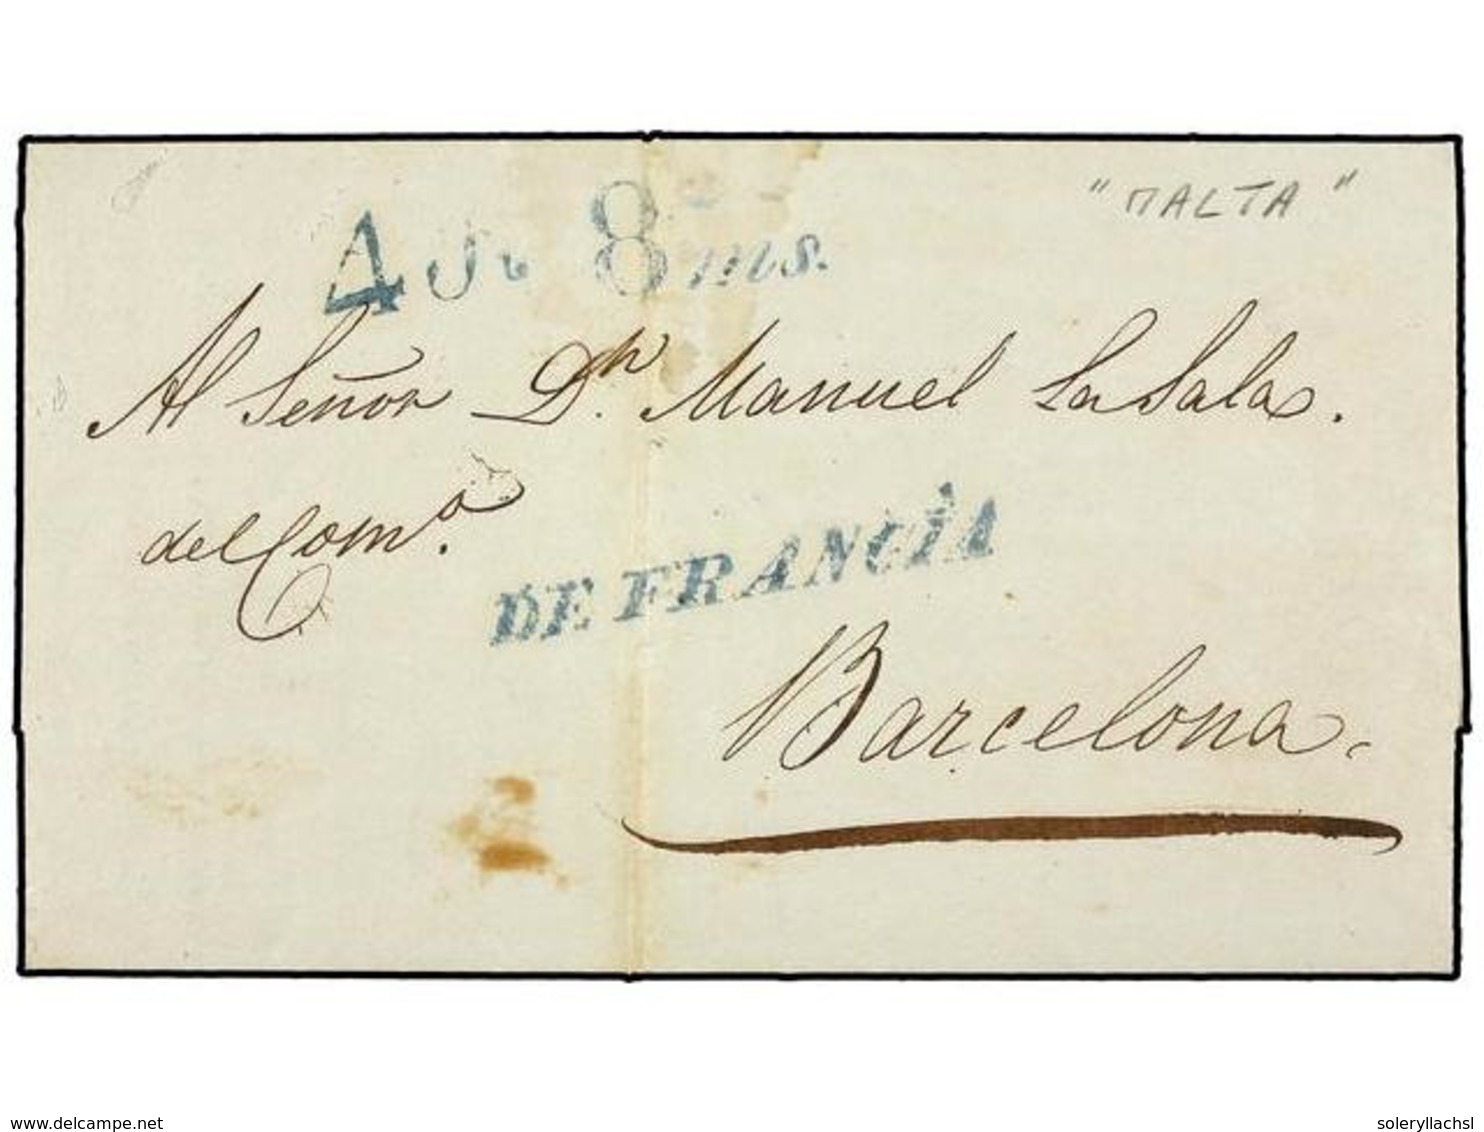 "MALTA"
4 Rs 8 ms.
Al Señor Dn. Manuel LaSala.
del Como.
DE FRANCIA
Barcelona.
delcampe.net
soleryllachsl